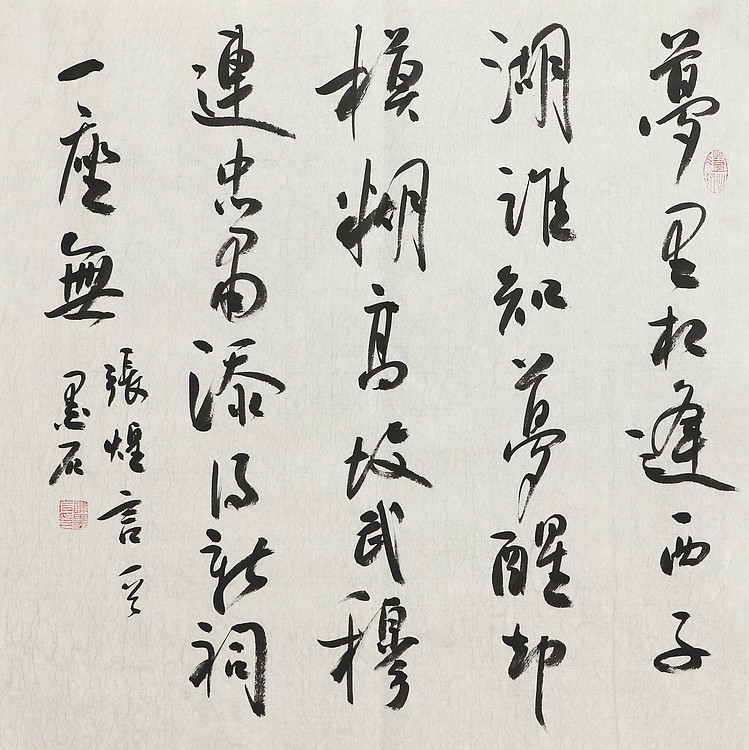 夢里相逢西子
湖誰知夢醒却
模糊高坟武穆
連忠肅添得新祠
一座無
張煌言
墨石